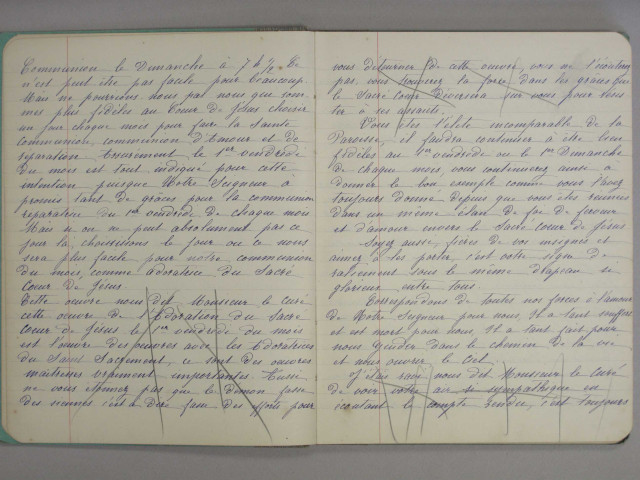 Communion le Dimanche à 7 h ½. Ce
n'est peut être pas facile pour beaucoup
Mais ne pourrions nous pas nous qui som
mes plus fidèles au Cœur de Jésus choisir
un jour chaque mois pour faire la Sainte
communion, communion d'Amour et de
réparation purement le 1er vendredi
du mois est tout indiqué pour cette
intention puisque Notre Seigneur a
promis tant de grâces pour la communion
réparatrice du 1er vendredi de chaque mois
Mais si on ne peut absolument pas ce
jour là choisissons le jour où ce nous
sera plus facile pour notre communion
du mois, comme adoratrice du Sacré
Cœur de Jésus.
Cette œuvre nous dit Monsieur le Curé
cette œuvre de l'Adoration du Sacré
Cœur de Jésus le 1er vendredi du mois
est l'œuvre des œuvres avec les Adoratrices
du Saint Sacrement, ce sont des œuvres
maîtresses vraiment importantes. Aussi
ne vous étonnez pas que le démon fasse
des siennes c'est à dire fasse des efforts pour
vous détourner de cette œuvre, vous ne l'écouterez
pas, vous la force dans les grâces que
le Sacré Cœur déversera sur vous pour
ter à ses assauts.
Vous êtes l'élite incomparable de la
Paroisse, il faudra continuer à être bien
fidèles au 1er vendredi ou le 1er Dimanche
de chaque mois, vous continuerez aussi à
donner le bon exemple comme vous l'avez
toujours donné depuis que vous êtes réunies
dans un même élan de foi de ferveur
et d'amour envers le Sacré Cœur de Jésus
Soyez aussi fières de vos insignes et
aimez à les porter, c'est votre signe de
ralliement sous le même drapeau si
glorieux entre tous.
Correspondons de toutes nos forces à l'amour
de Notre Seigneur pour nous. Il a tant souffert
et est mort pour nous, Il a tant fait pour
nous guider dans le chemin de la vie
et nous ouvrir le Ciel.
J'étais ravi nous dit Monsieur le Curé
de voir votre air si sympathique en
écoutant le compte rendu, c'est toujours